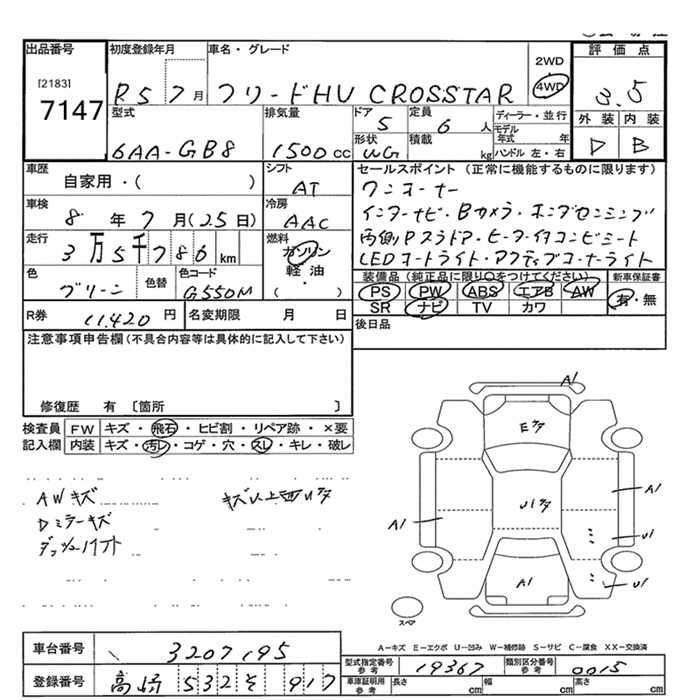 出品番号 初度登録年月 車名・グレード 評価点
[2183] 2WD
7147 R5 7月 フリードHV CROSSTAR 4WD 3.5
型式 排気量 ドア 定員 ディーラー・並行 外装 内装
5 6人 モデル年式 年
6AA-GB8 1500cc 形状 WG 積載 kg ハンドル 左・右 D B
車歴 シフト セールスポイント (正常に機能するものに限ります)
自家用・( ) AT ワンオーナー
車検 冷房 インターナビ・Bカメラ・ホンダセンシング
8年7月(25日) AAC 両側Pスラドア・ヒータ付コンビシート
走行 燃料 LEDオートライト・アクティブコーナーライト
3万5千786km ガソリン 装備品 (純正品に限り○をつけてください) 新車保証書
色 色替 色コード 軽油 PS PW ABS エアB AW 有・無
グリーン G550M (・) SR ナビ TV カワ
R券 11,420円 名変期限 月 日 後日品
注意事項申告欄(不具合内容等は具体的に記入して下さい)
修復歴 有 〔箇所 〕
検査員 FW キズ・飛石・ヒビ割・リペア跡・×要
記入欄 内装 キズ・汚レ・コゲ・穴・スレ・キレ・破レ
AWキズ キズ以上西Uタ
Dミラーキズ
A1
Eクタ
A1
U1クタ
A1
U1
U1
A1
スペア
A-キズ E-エクボ U-凹み W-補修跡 S-サビ C-腐食 XX-交換済
車台番号 3207195
型式指定番号 参考 19367 類別区分番号 参考 0015
登録番号 高崎 532 そ 917
車庫証明用 参考 長さ cm 幅 cm 高さ cm